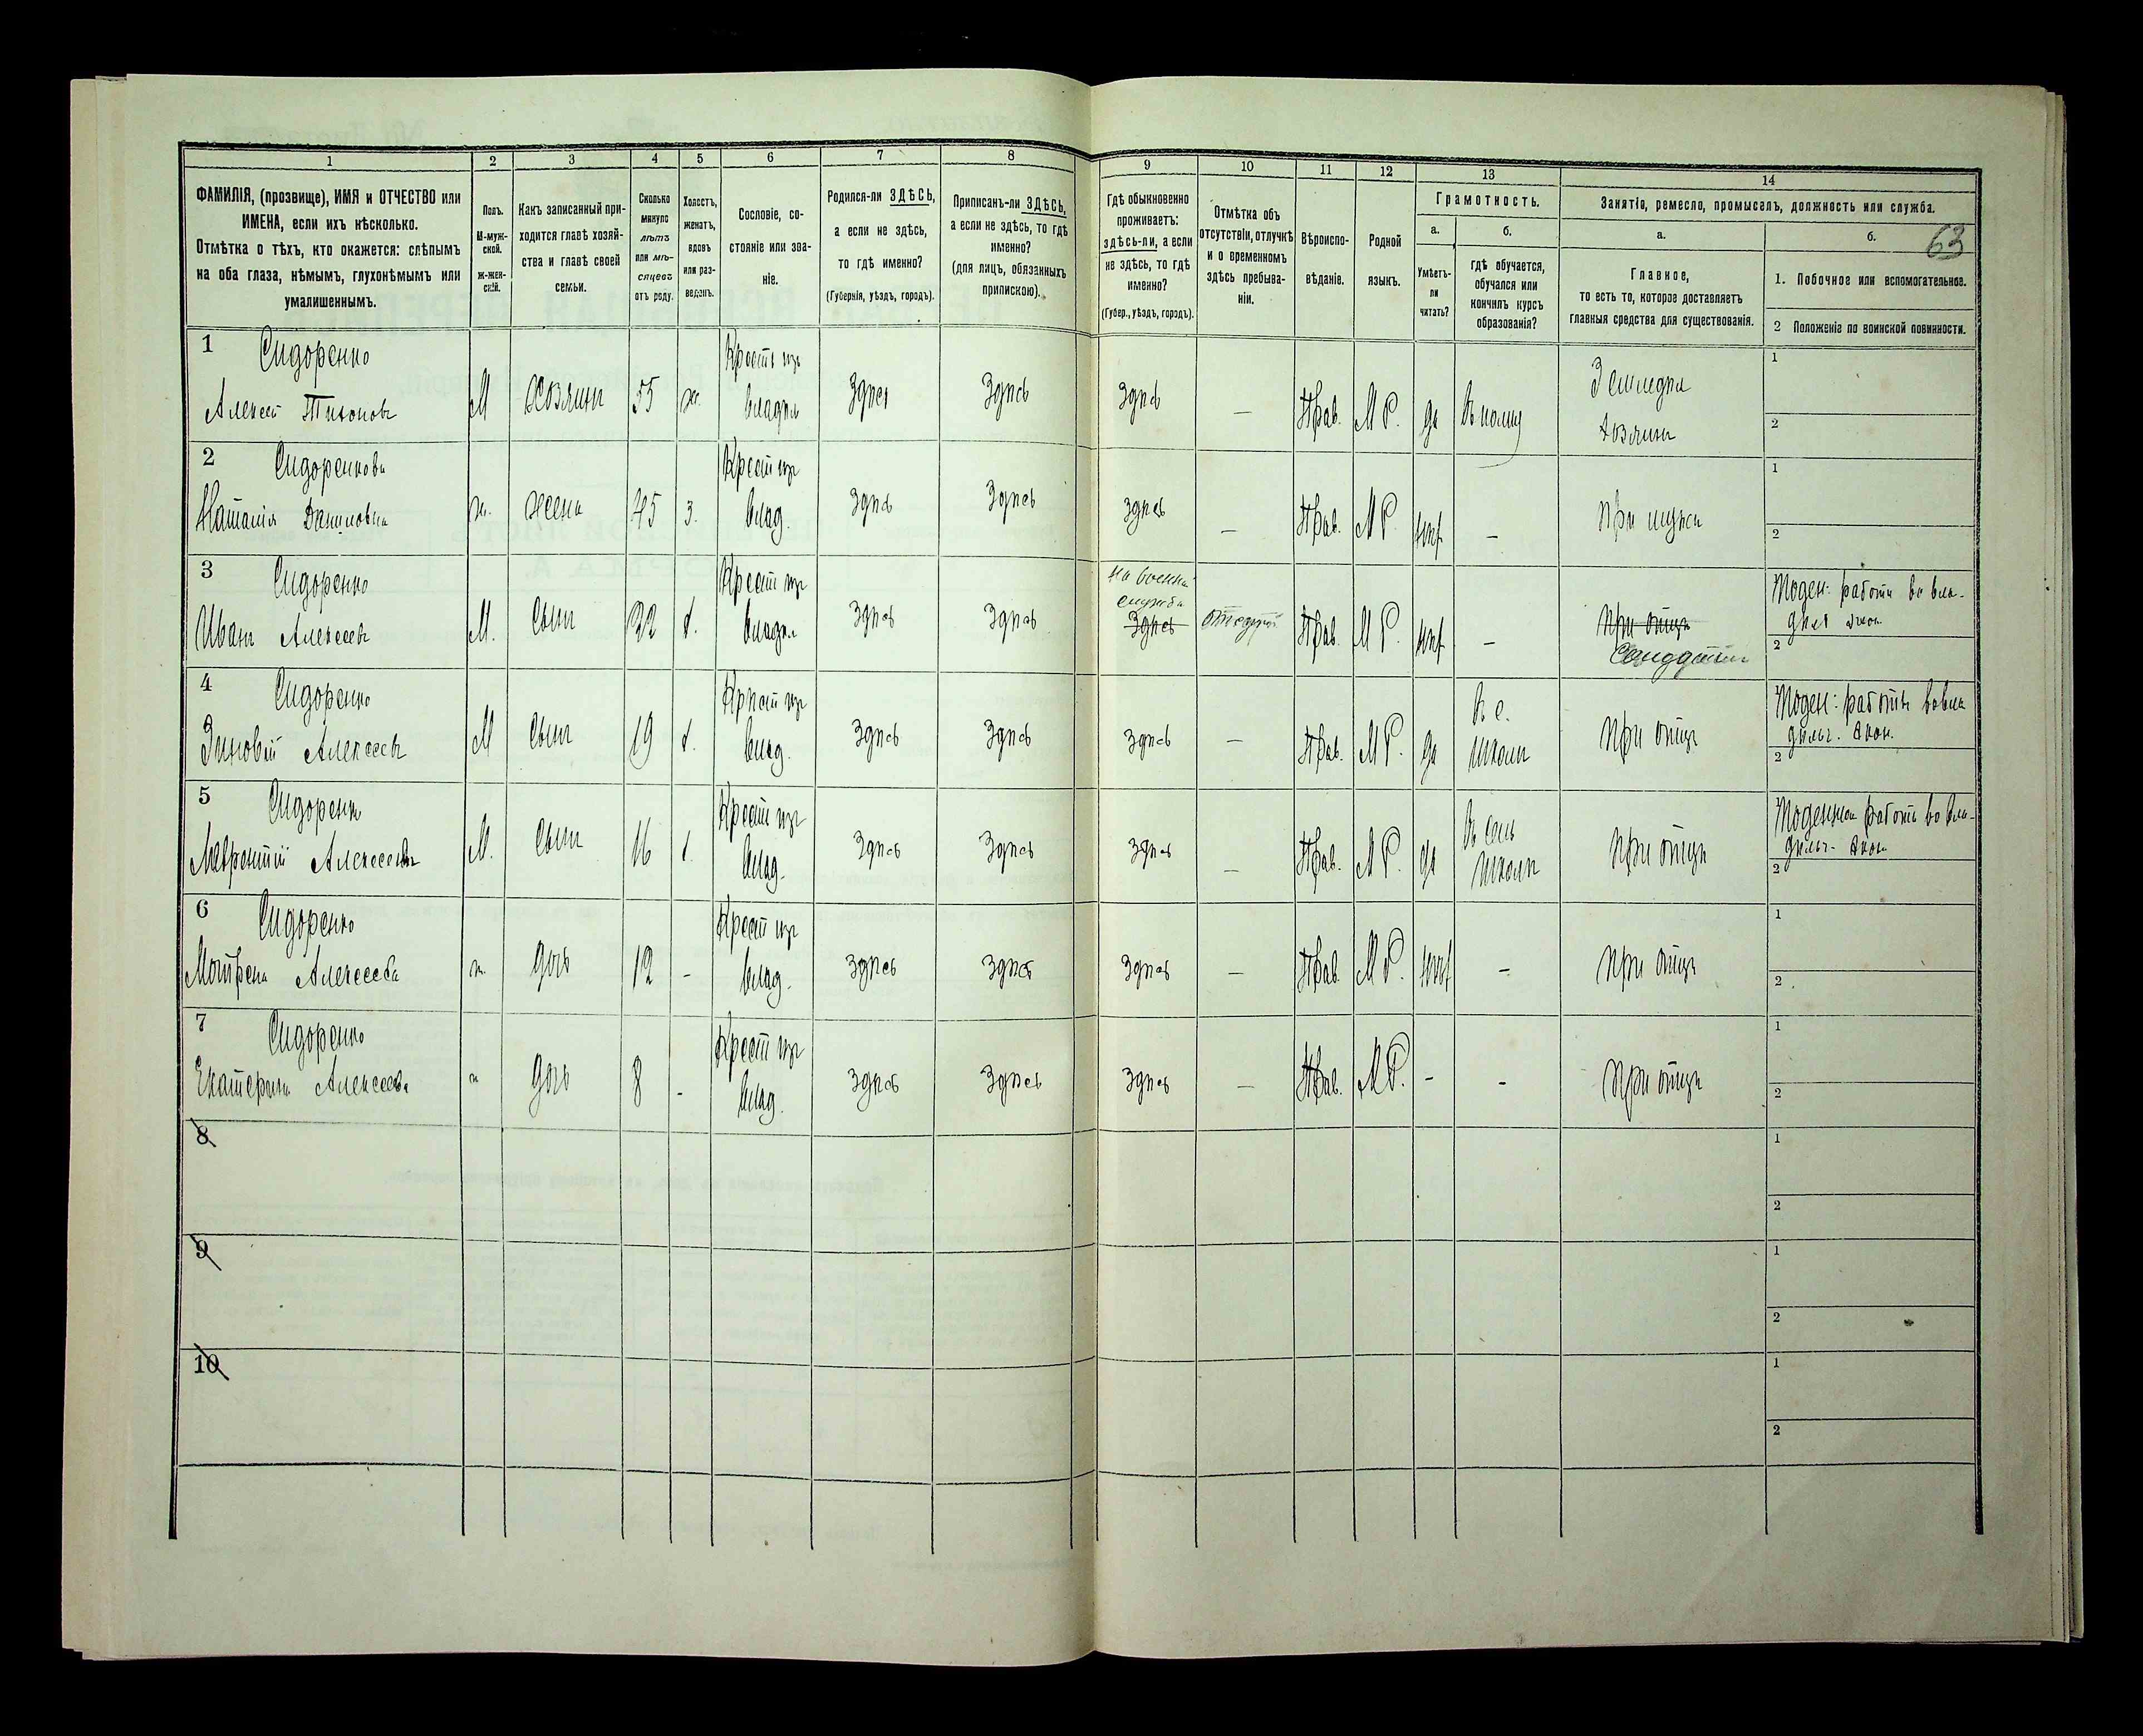 63
1 2 3 4 5 6 7 8 9 10 11 12 13 14
ФАМИЛІЯ, (прозвище), ИМЯ и ОТЧЕСТВО или
ИМЕНА, если ихъ нѣсколько.
Отмѣтка о тѣхъ, кто окажется: слѣпымъ
на оба глаза, нѣмымъ, глухонѣмымъ или
умалишеннымъ.
Полъ.
М-муж-
ской.
ж-жен-
скій.
Какъ записанный при-
ходится главѣ хозяй-
ства и главѣ своей
семьи.
Сколько
минуло
лѣтъ
или мѣ-
сяцевъ
отъ роду.
Холостъ,
женатъ,
вдовъ
или раз-
веденъ.
Сословіе, со-
стояніе или зва-
ніе.
Родился-ли ЗДѢСЬ,
а если не здѣсь,
то гдѣ именно?
(Губернія, уѣздъ, городъ).
Приписанъ-ли ЗДѢСЬ,
а если не здѣсь, то гдѣ
именно?
(для лицъ, обязанныхъ
припискою).
Гдѣ обыкновенно
проживаетъ:
здѣсь-ли, а если
не здѣсь, то гдѣ
именно?
(Губер., уѣздъ, городъ).
Отмѣтка объ
отсутствіи, отлучкѣ
и о временномъ
здѣсь пребыва-
ніи.
Вѣроиспо-
вѣданіе.
Родной
языкъ.
Грамотность.
а.
Умѣетъ-
ли
читать?
б.
гдѣ обучается,
обучался или
кончилъ курсъ
образованія?
Занятіе, ремесло, промыселъ, должность или служба.
а.
Главное,
то есть то, которое доставляетъ
главныя средства для существованія.
б.
1. Побочное или вспомогательное.
2 Положеніе по воинской повинности.
1 Сидоренко
Алексѣй Тихоновъ
М
хозяинъ
55
ж.
Крест. изъ
владѣл
Здѣсь
Здѣсь
Здѣсь
—
Прав.
М Р.
да
Въ полку
Земледѣл
хозяинъ
1
2
2 Сидоренкова
Наталія Даниловна
ж.
жена
45
З.
Крест изъ
Влад.
Здѣсь
Здѣсь
Здѣсь
—
Прав.
М Р.
нѣт
—
При мужѣ
1
2
3 Сидоренко
Иванъ Алексѣевъ
М.
Сынъ
22
х.
Крест изъ
Владѣл
Здѣсь
Здѣсь
На военной
службѣ
Здѣсь
Прав.
М Р.
нѣт
—
При отцѣ
Солдатъ
Поден: работы во вла-
дѣл экон
2
4 Сидоренко
Зиновій Алексѣевъ
М
Сынъ
19
х.
Крест изъ
Влад.
Здѣсь
Здѣсь
Здѣсь
—
Прав.
М Р.
да
Въ с.
школѣ
При отцѣ
Поден: работы во вла
дѣльч. экон.
2
5 Сидоренк
Лаврентій Алексѣевъ
М.
Сынъ
16
х.
Крест изъ
Влад.
Здѣсь
Здѣсь
Здѣсь
—
Прав.
М Р.
да
Въ сель
школѣ
При отцѣ
Поденная работы во вла-
дѣльч. экон
2
6 Сидоренко
Мотрена Алексѣева
ж.
дочь
12
-
Крест изъ
Влад.
Здѣсь
Здѣсь
Здѣсь
—
Прав.
М Р.
нѣт
-
При отцѣ
1
2
7 Сидоренко
Екатерина Алексѣева
ж
дочь
8
-
Крест изъ
Влад.
Здѣсь
Здѣсь
Здѣсь
—
Прав.
М Р.
-
-
При отцѣ
1
2
8
1
2
9
1
2
10
1
2